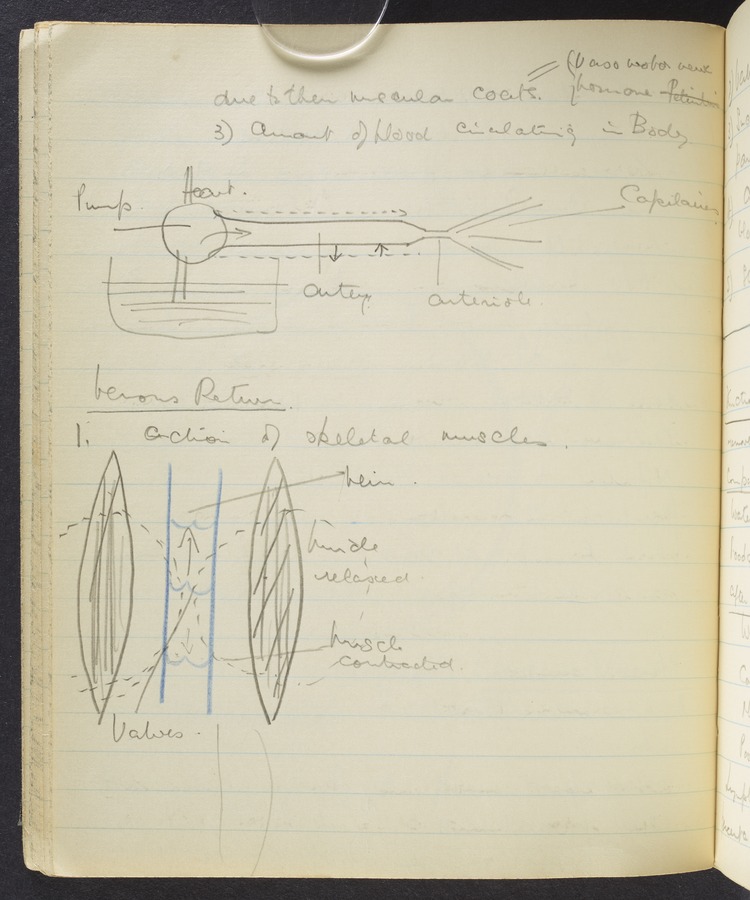 (Vaso motor nerve
due to their muscular coats. hormone
3) Amount of blood circulating in Body
Pump. Heart. Capilaries
artery. arteriole.
Venous Return.
1. action of skeletal muscles.
Vein.
Muscle
relaxed.
Muscle
contracted.
Valves.